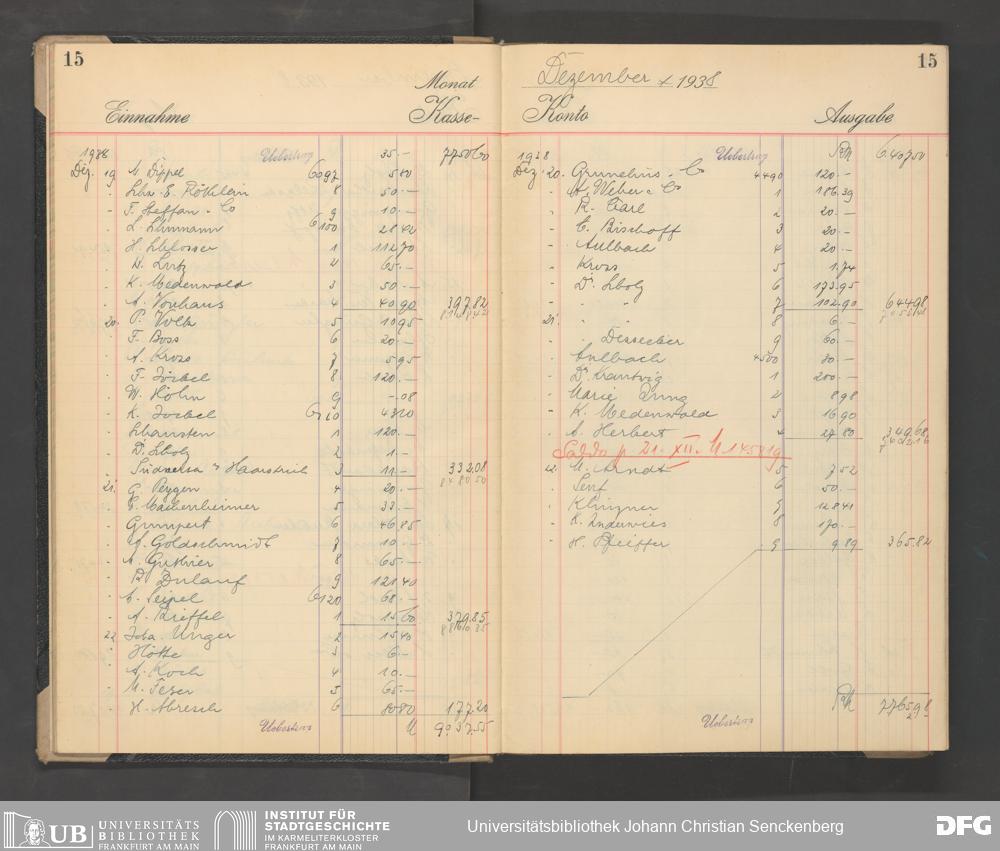 15
Monat
Einnahme
Kasse-
1938 Uebertrag 35.- 7750 60
Dez. 19 6097 5 80
8 50.-
F. Steffan & Co 9 10.-
6100 28 40
H. Schlosser 1 112 70
D. Lutz 2 65.-
K. Medenwald 3 50.-
A. Vonhaus 4 40 90 397.82
20. P. Volk 5 10 95
F. Boss 6 20.-
A. Kross 7 5 95
8 120.-
W. Höhn 9 -.08
6110 43 10
1 120.-
D. Scholz 2 1.-
3 11.- 332.08
21. 4 20.-
5 33.-
Gumpert 6 46 85
A. Goldschmidt 7 10.-
8 65.-
9 121 40
C. Seipel 6120 68.-
A. Kreffel 1 15 60 379.85
22. Unger 2 15 40
3 6.-
A. Koch 4 10.-
5 65.-
H. Abresch 6 80 80 177.20
Uebertrag M 9037.55
15
Dezember 1938
Konto
Ausgabe
1938 Uebertrag RM 6407 50
Dez. 20. Grunelius & Co 4490 120.-
A. Weber & Co 1 186.39
2 20.-
E. Bischoff 3 20.-
Aulbach 4 20.-
Kross 5 1.74
Dr. Scholz 6 173.95
" " 7 102.90 644.98
21. " 8 6.-
9 60.-
Aulbach 4500 30.-
1 200.-
Marie Jung 2 8 98
K. Medenwald 3 16 90
A. Herbert 4 27 80 349.68
Saldo p. 21. XII. M 1458.19
22. Arndt 5 7 52
6 50.-
Klinzner 7 128 41
8 170.-
H. Pfeiffer 9 9.89 365.82
RM 7765 98
Uebertrag
UB UNIVERSITÄTS
BIBLIOTHEK
FRANKFURT AM MAIN
INSTITUT FÜR
STADTGESCHICHTE
IM KARMELITERKLOSTER
FRANKFURT AM MAIN
Universitätsbibliothek Johann Christian Senckenberg
DFG